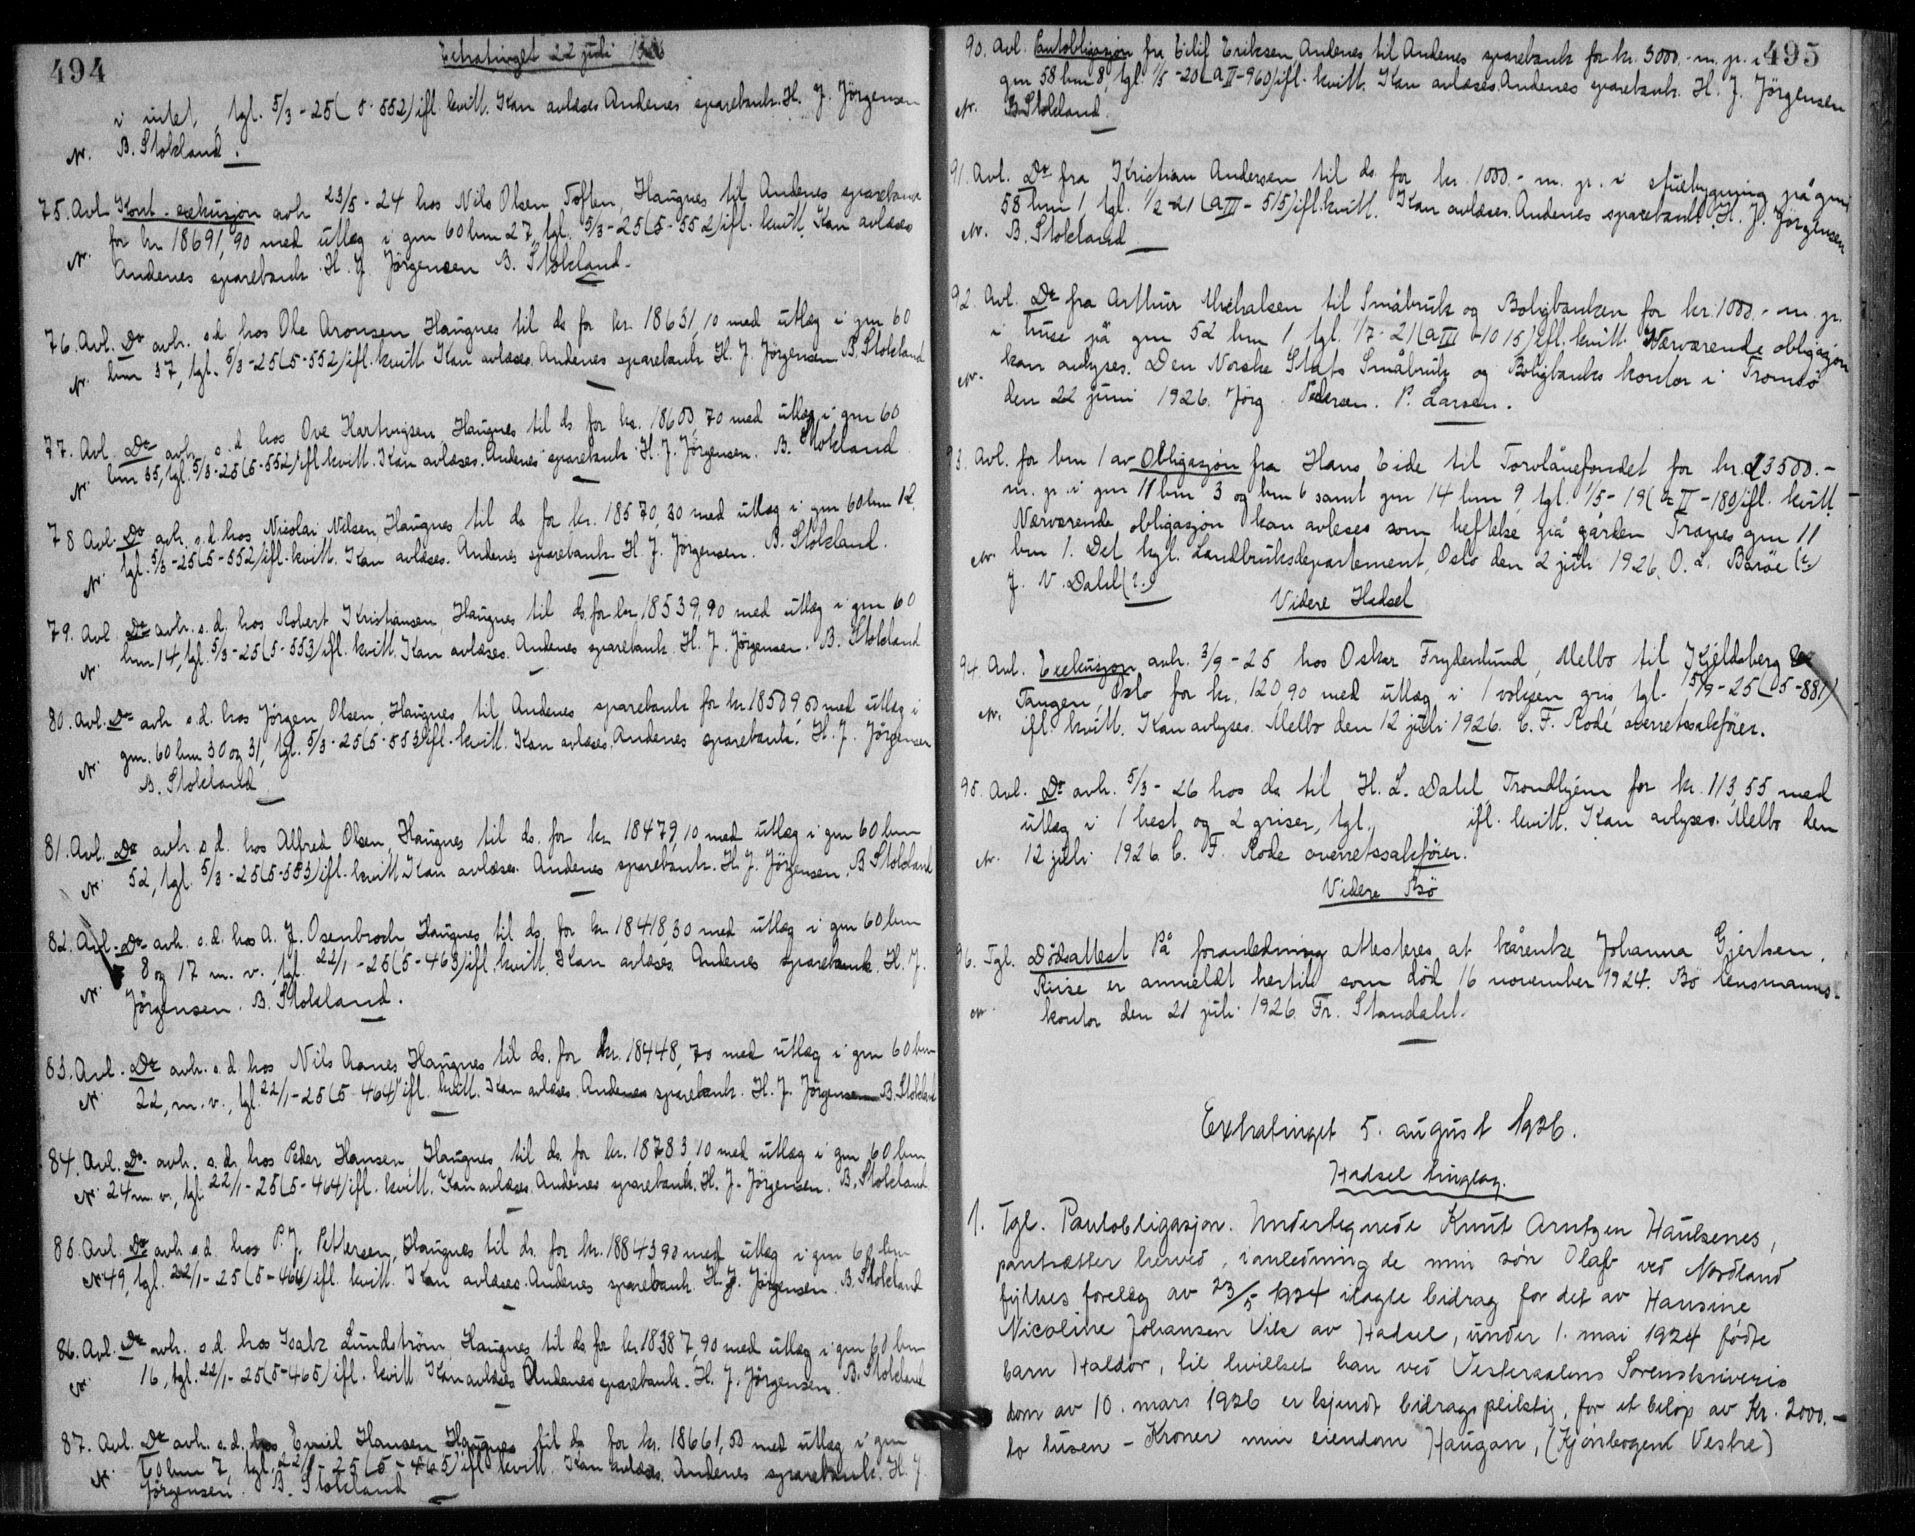 494
Extratinget 22 juli 1926
i intet, tgl. 5/3-25 (5-552) ifl. kvitt. Kan avlæses. Andenes sparebank. H. J. Jörgensen
N. B. Stokland.
75. Avl. Kont. exekusjon avh 23/5-24 hos Nils Olsen Toften, Haugnes til Andenes sparebank
for kr 18691,90 med utlæg i gnr 60 bnr 27, tgl. 5/3-25 (5-552) ifl. kvitt. Kan avlæses
N. Andenes sparebank. H. J. Jörgensen B. Stokland.
76. Avl. Do avh. s.d. hos Ole Aronsen, Haugnes til ds for kr. 18631,10 med utlæg i gnr 60
N. bnr 37, tgl. 5/3-25 (5-552) ifl. kvitt. Kan avlæses. Andenes sparebank H. J. Jörgensen. B. Stokland
77. Avl. Do avh. s.d. hos Ove Hartvigsen, Haugnes til ds. for kr. 18600,70 med utlæg i gnr 60
N. bnr 35, tgl. 5/3-25 (5-552) ifl. kvitt. Kan avlæses. Andenes sparebank H. J. Jörgensen. B. Stokland
78 Avl. Do avh. s.d. hos Nicolai Nelsen, Haugnes til ds for kr. 18570,30 med utlæg i gnr 60 bnr 12,
N. tgl. 5/3-25 (5-552) ifl. kvitt. Kan avlæses. Andenes sparebank H. J. Jörgensen. B. Stokland.
79. Avl. Do avh. s.d. hos Robert Kristiansen, Haugnes til ds. for kr. 18539,90 med utlæg i gnr 60
N. bnr 14, tgl. 5/3-25 (5-553) ifl. kvitt. Kan avlæses. Andenes sparebank. H. J. Jörgensen. B. Stokland
80. Avl. Do avh s.d. hos Jörgen Olsen, Haugnes til Andenes sparebank for kr. 18509,50 med utlæg i
N. gnr. 60 bnr 30 og 31, tgl. 5/3-25 (5-553) ifl. kvitt. Kan avlæses. Andenes sparebank. H. J. Jörgensen
B. Stokland
81. Avl. Do avh. s.d. hos Alfred Olsen, Haugnes til ds. for kr. 18479,10 med utlæg i gnr 60 bnr
N. 52, tgl. 5/3-25 (5-553) ifl. kvitt. Kan avlæses. Andenes sparebank. H. J. Jörgensen. B. Stokland
82. Avl. Do avh. s.d. hos A. J. Osenbroch Haugnes til ds. for kr. 18418,30 med utlæg i gnr 60 bnr
N. 8 og 17 m. v., tgl. 22/1-25 (5-463) ifl. kvitt. Kan avlæses. Andenes sparebank. H. J.
Jörgensen. B. Stokland.
83. Avl. Do avh. s.d. hos Nils Aanes Haugnes til ds. for kr. 18448,70 med utlæg i gnr 60 bnr
N. 22, m. v., tgl. 22/1-25 (5-464) ifl. kvitt. Kan avlæses. Andenes sparebank. H. J. Jörgensen B. Stokland
84. Avl. Do avh. s.d. hos Peder Hansen, Haugnes til ds. for kr. 18783,10 med utlæg i gnr 60 bnr
N. 24 m. v., tgl. 22/1-25 (5-464) ifl. kvitt. Kan avlæses. Andenes sparebank. H. J. Jörgensen. B. Stokland
85. Avl. Do avh. s.d. hos P. J. Pettersen, Haugnes til ds. for kr. 18843,90 med utlæg i gnr 60 bnr
N. 49, tgl. 22/1-25 (5-464) ifl. kvitt. Kan avlæses. Andenes sparebank. H. J. Jörgensen. B. Stokland
86. Avl. Do avh. s.d. hos Isak Lundström, Haugnes til ds for kr. 18387,90 med utlæg i gnr 60 bnr
N. 16, tgl. 22/1-25 (5-465) ifl. kvitt. Kan avlæses Andenes sparebank. H. J. Jörgensen. B. Stokland
87. Avl. Do avh. s.d. hos Emil Hansen Haugnes til ds for kr. 18661,50 med utlæg i gnr
N. 60 bnr 7, tgl. 22/1-25 (5-465) ifl. kvitt. Kan avlæses. Andenes sparebank. H. J.
Jörgensen. B. Stokland
495
90. Avl. Pantobligasjon fra Eilif Eriksen, Andenes til Andenes sparebank for kr. 3000.- m. p. i
gnr 58 bnr 8, tgl. 1/5-20 (a II-960) ifl. kvitt. Kan avlæses. Andenes sparebank. H. J. Jörgensen
N. B. Stokland.
91. Avl. Do fra Kristian Andersen til ds. for kr. 1000.- m. p. i stuebygning på gnr
58 bnr 1, tgl. 1/2-21 (a III-515) ifl. kvitt. Kan avlæses. Andenes sparebank. H. J. Jörgensen
N. B. Stokland
92. Avl. Do fra Arthur Michalsen til Småbruk og Boligbanken for kr. 1000.- m. p.
i huse på gnr 52 bnr 1 tgl. 1/7-21 (a III-1015) ifl. kvitt. Nærværende obligasjon
N. kan avlyses. Den Norske Stats Småbruk og Boligbanks kontor i Tromsö
den 22 juni 1926. Jörg. Pedersen. P. Larsen.
93. Avl. for bnr 1 av Obligasjon fra Hans Eide til Torvlånefondet for kr. 23500.-
m. p. i gnr 11 bnr 3 og bnr 6 samt gnr 14 bnr 9, tgl. 1/5-19 (a II-180) ifl. kvitt.
Nærværende obligasjon kan avleses som heftelse på gården Tranes gnr 11
N. bnr 1. Det kgl. Landbruksdepartement, Oslo den 2 juli 1926. O. L. Baröe (e)
J. V. Dahl (?)
Videre Hadsel
94. Avl. Exekusjon avh. 3/9-25 hos Oskar Frydenlund, Melbo til Kjeldsberg &
N. Tangen, Oslo for kr. 120,90 med utlæg i 1 voksen gris, tgl. 15/9-25 (5-881)
ifl. kvitt. Kan avlyses. Melbo den 12 juli 1926. C. F. Rode, overretssakförer.
95. Avl. Do avh. 5/3-26 hos ds. til H. L. Dahl, Trondhjem for kr. 113,55 med
utlæg i 1 hest og 2 griser, tgl. ifl. kvitt. Kan avlyses. Melbo den
N. 12 juli 1926. C. F. Rode overretssakförer.
Videre Bö
96. Tgl. Dödsattest På foranledning attesteres at kårenke Johanna Gjertsen,
Rise er anmeldt hertil som död 16 november 1924. Bö lensmanns-
N. kontor den 21 juli 1926. Fr. Standahl.
Extratinget 5. august 1926.
Hadsel tinglag.
1. Tgl. Pantobligasjon. Undertegnede Knut Arntzen Haukenes,
pantsætter herved, i anledning de min sön Olaf ved Nordland
fylkes forelæg av 23/5 1924 ilagte bidrag for det av Hansine
Nicoline Johansen Vik av Hadsel, under 1. mai 1924 födte
barn Haldor, til hvilket han ved Vesteraalens Sorenskriveris
dom av 10. mars 1926 er kjendt bidragspliktig, for et belöp av Kr. 2000.-
to tusen - Kroner min eiendom Haugan, (Kjönbogent Vestre)